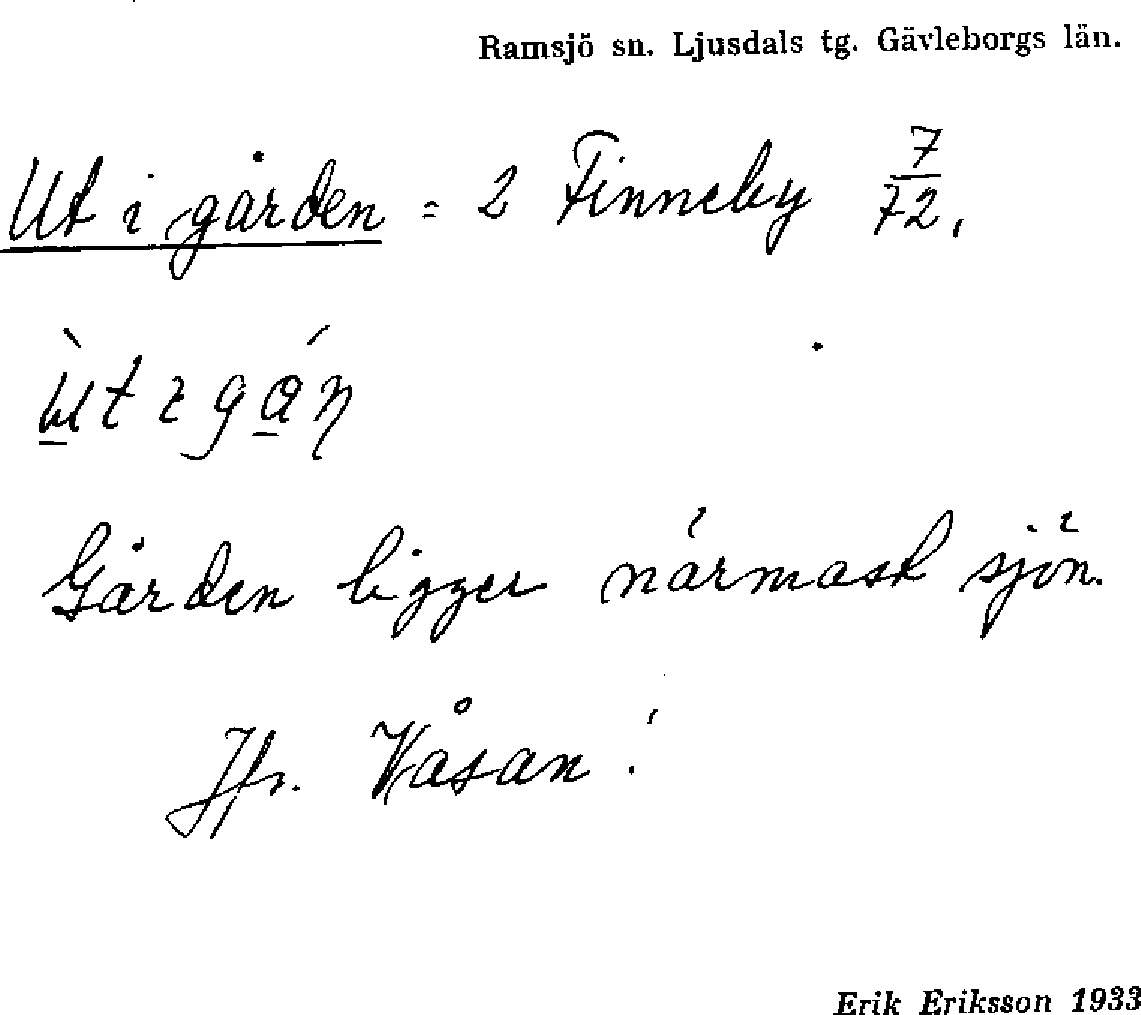 Ramsjö sn. Ljusdals tg. Gävleborgs län.
Ut i gården = 2 Finneby 7/72.
Gården ligger närmast sjön.
Jfr. Våsan!
Erik Eriksson 1933